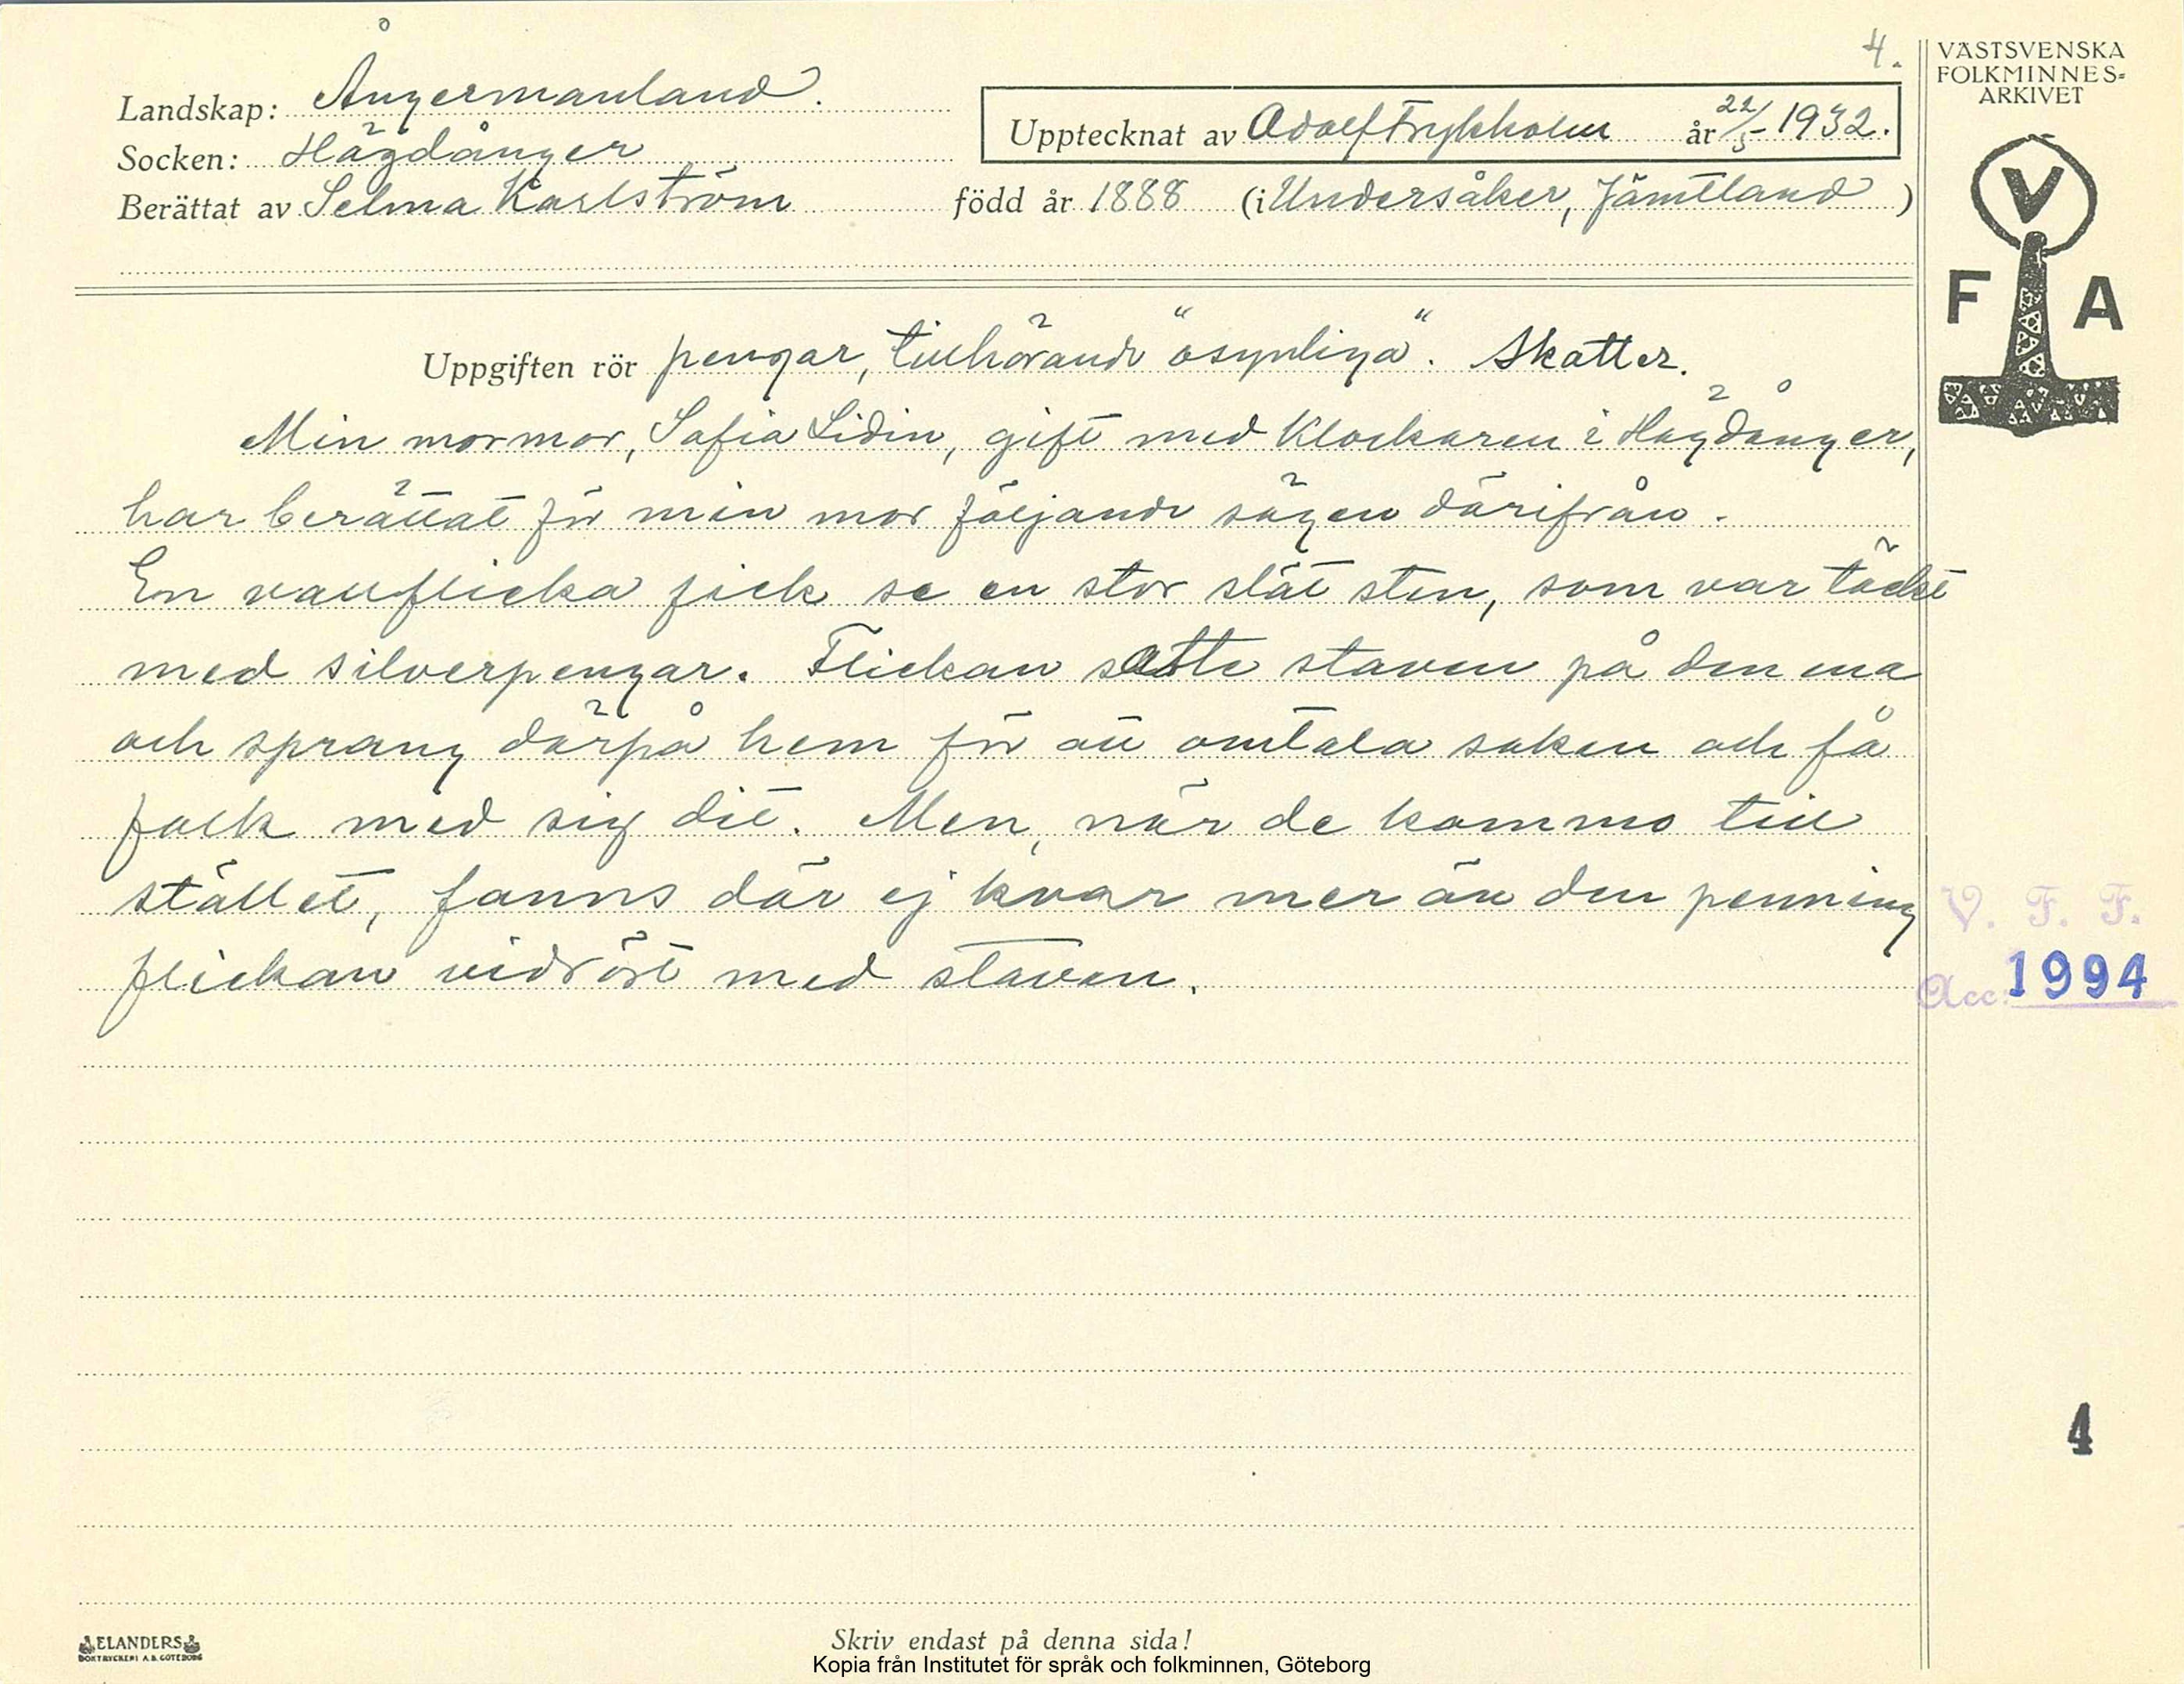 4.
VÄSTSVENSKA
FOLKMINNES-
ARKIVET
Landskap: Ångermanland.
Upptecknat av Adolf Frykholm år 22/5 - 1932.
Socken: Högdånger
Berättat av Selma Karlström född år 1888 (i Undersåker, Jämtland)
V
F A
Uppgiften rör pengar, tillhörande "osynliga". Skatter.
Min mormor, Sofia Lidin, gift med Klockaren i Högdånger,
har berättat för min mor följande sägen därifrån.
En vallflicka fick se en stor slät sten, som var täckt
med silverpengar. Flickan satte staven på den ena
och sprang därpå hem för att omtala saken och få
folk med sig dit. Men, när de kommo till
stället, fanns där ej kvar mer än den penning
flickan vidrört med staven.
V. F. F.
Acc. 1994
4
ELANDERS
BOKTRYCKERI A.B. GÖTEBORG
Skriv endast på denna sida!
Kopia från Institutet för språk och folkminnen, Göteborg